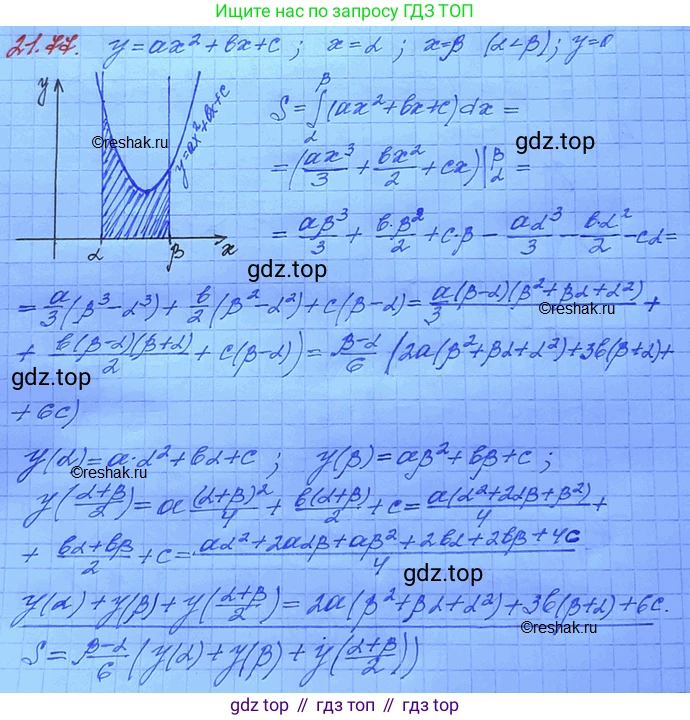 Ищите нас по запросу ГДЗ ТОП
21.77. y=ax²+bx+c ; x=α ; x=β (α<β) ; y=0
y
©reshak.ru
y=ax²+bx+c
α β x
S=∫_α^β (ax²+bx+c)dx=
gdz.top
=(ax³/3+bx²/2+cx)|_α^β=
=aβ³/3+b·β²/2+cβ-aα³/3-b·α²/2-cα=
gdz.top
=a/3(β³-α³)+b/2(β²-α²)+c(β-α)=a(β-α)(β²+βα+α²)/3+
©reshak.ru
+b(β-α)(β+α)/2+c(β-α))=(β-α)/6(2a(β²+βα+α²)+3b(β+α)+
gdz.top
+6c)
y(α)=a·α²+bα+c ; y(β)=aβ²+bβ+c ;
©reshak.ru
y((α+β)/2)=a(α+β)²/4+b(α+β)/2+c=a(α²+2αβ+β²)/4+
+(bα+bβ)/2+c=(aα²+2aαβ+aβ²+2bα+2bβ+4c)/4
gdz.top
y(α)+y(β)+y((α+β)/2)=2a(β²+βα+α²)+3b(β+α)+6c.
©reshak.ru
S=(β-α)/6(y(α)+y(β)+y((α+β)/2))
gdz.top // гдз топ // gdz.top // гдз.топ // gdz top